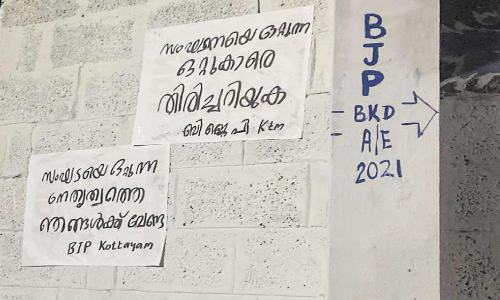 സംഘടനയെ ഒറ്റുന്ന
ഒറ്റുകാരെ
തിരിച്ചറിയുക
ബി ജെ പി Ktm
സംഘടയെ
നേതൃത്വത്തെ
ഞങ്ങൾക്ക് വേണ്ട
BJP Kottayam
B
J
P
BKD
A/E
2021